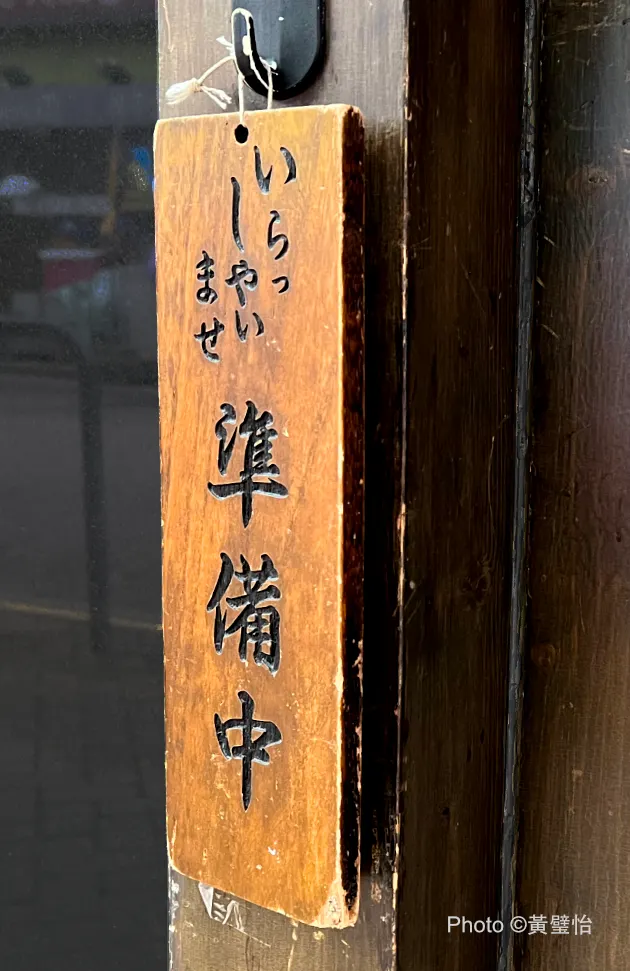 いらっ
しゃい
ませ
準備中
Photo ©黃璧怡